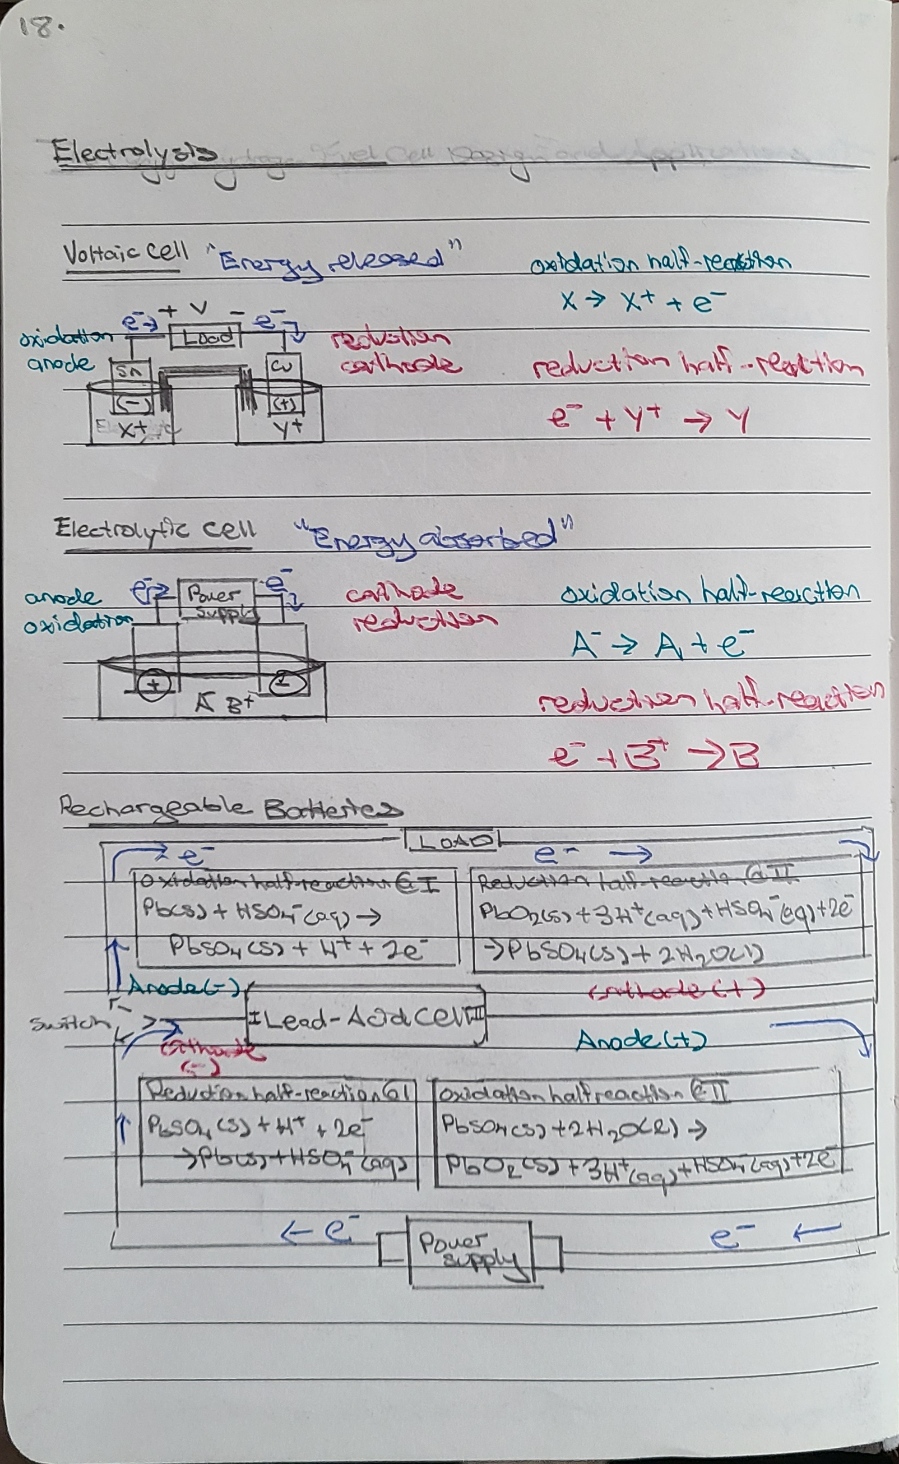 18.
Electrolysis
Voltaic cell "Energy released"
oxidation half-reaction
X → X+ + e-
e- → + V - e-
Load
oxidation
anode
reduction
cathode
Sn
Cu
(-)
(+)
X+
Y+
reduction half-reaction
e- + Y+ → Y
Electrolytic cell "Energy absorbed"
e- Power supply e-
anode
oxidation
cathode
reduction
+
-
A- B+
oxidation half-reaction
A- → A + e-
reduction half-reaction
e- + B+ → B
Rechargeable Batteries
LOAD
→ e-
e- →
Oxidation half-reaction @ I
Pb(s) + HSO4-(aq) →
PbSO4(s) + H+ + 2e-
Reduction half-reaction @ II
PbO2(s) + 3H+(aq) + HSO4-(aq) + 2e-
→ PbSO4(s) + 2H2O(l)
Anode (-)
Cathode (+)
Switch
I Lead-Acid Cell II
Cathode
(-)
Anode (+)
Reduction half-reaction @ I
PbSO4(s) + H+ + 2e-
→ Pb(s) + HSO4-(aq)
Oxidation half reaction @ II
PbSO4(s) + 2H2O(l) →
PbO2(s) + 3H+(aq) + HSO4-(aq) + 2e-
← e-
Power supply
e- ←